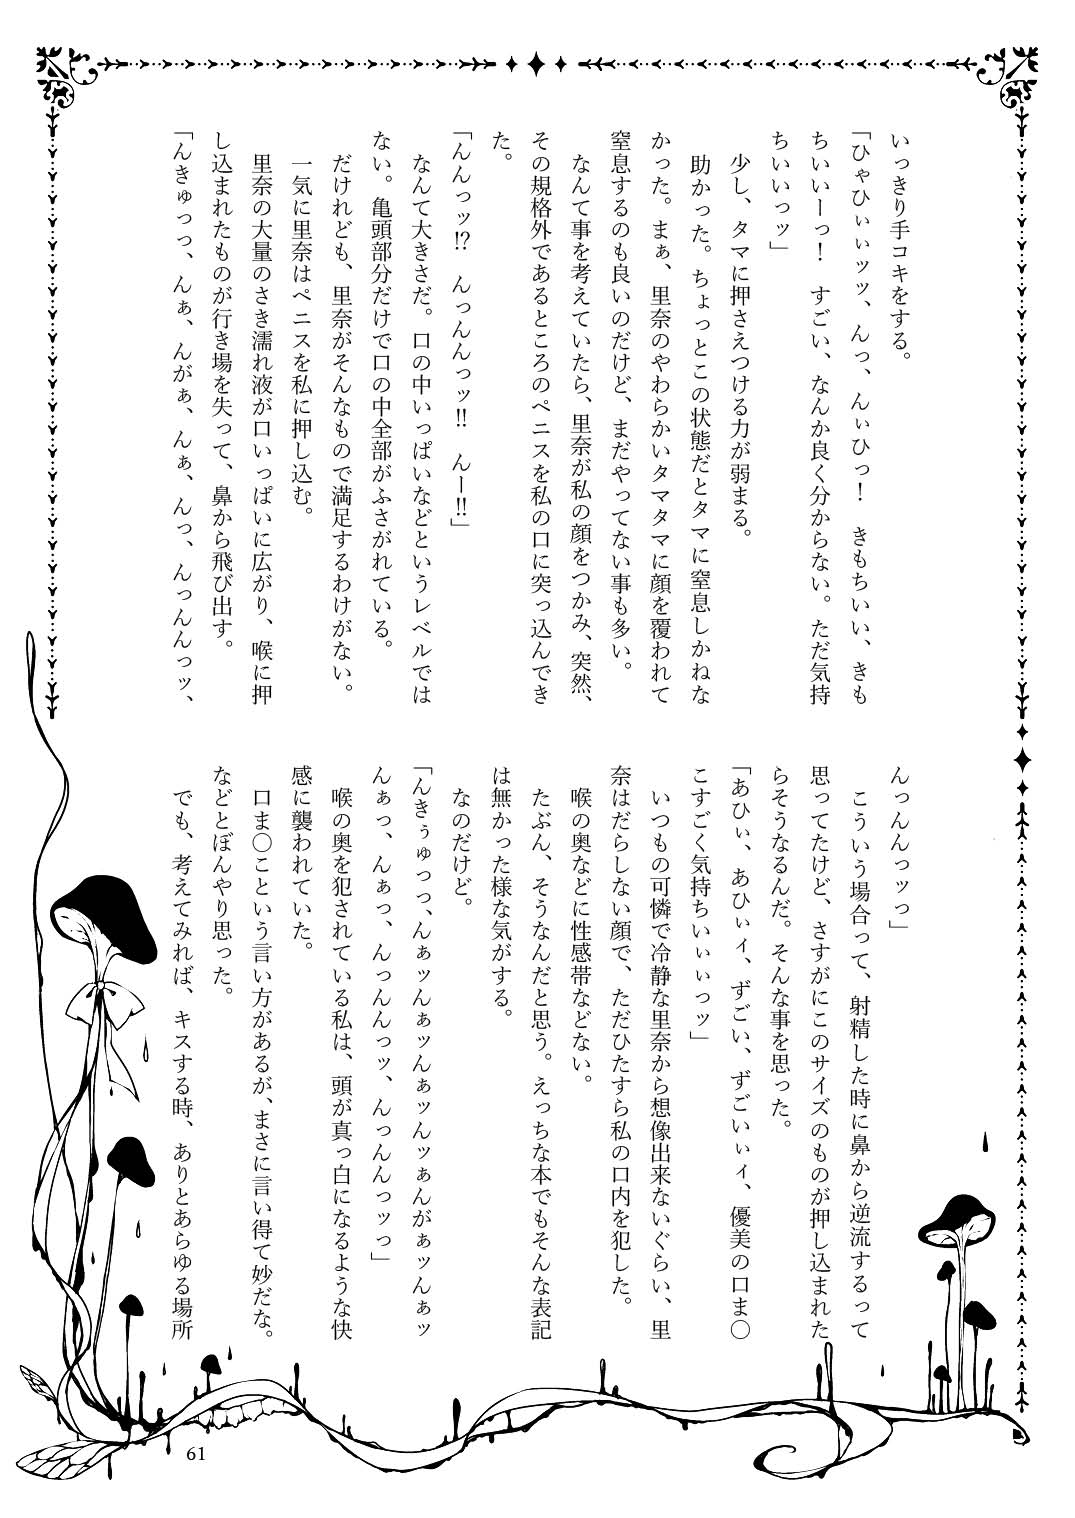 いっきり手コキをする。
「ひゃひぃぃッッ、んっ、んぃひっ！　きもちいい、きも
ちいいーっ！　すごい、なんか良く分からない。ただ気持
ちいいっッ」
少し、タマに押さえつける力が弱まる。
助かった。ちょっとこの状態だとタマに窒息しかねな
かった。まぁ、里奈のやわらかいタマタマに顔を覆われて
窒息するのも良いのだけど、まだやってない事も多い。
なんて事を考えていたら、里奈が私の顔をつかみ、突然、
その規格外であるところのペニスを私の口に突っ込んでき
た。
「んんっッ!?　んっんんっッ!!　んー!!」
なんて大きさだ。口の中いっぱいなどというレベルでは
ない。亀頭部分だけで口の中全部がふさがれている。
だけれども、里奈がそんなもので満足するわけがない。
一気に里奈はペニスを私に押し込む。
里奈の大量のさき濡れ液が口いっぱいに広がり、喉に押
し込まれたものが行き場を失って、鼻から飛び出す。
「んきゅっっ、んぁ、んがぁ、んぁ、んっ、んっんんっッ、
んっんんっッっ」
こういう場合って、射精した時に鼻から逆流するって
思ってたけど、さすがにこのサイズのものが押し込まれた
らそうなるんだ。そんな事を思った。
「あひぃ、あひぃィ、ずごい、ずごいぃィ、優美の口ま〇
こすごく気持ちいぃぃっッ」
いつもの可憐で冷静な里奈から想像出来ないぐらい、里
奈はだらしない顔で、ただひたすら私の口内を犯した。
喉の奥などに性感帯などない。
たぶん、そうなんだと思う。えっちな本でもそんな表記
は無かった様な気がする。
なのだけど。
「んきぅゅっっ、んぁッんぁッんぁッんッぁんがぁッんぁッ
んぁっ、んぁっ、んっんんっッ、んっんんっッっ」
喉の奥を犯されている私は、頭が真っ白になるような快
感に襲われていた。
口ま〇こという言い方があるが、まさに言い得て妙だな。
などとぼんやり思った。
でも、考えてみれば、キスする時、ありとあらゆる場所
61